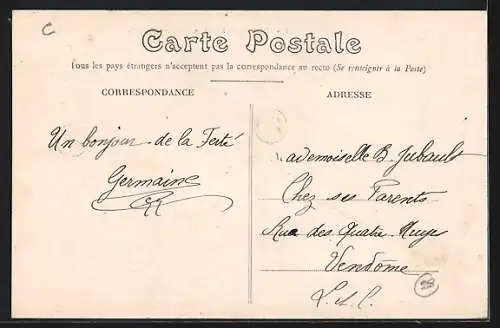 C
Carte Postale
Tous les pays étrangers n'acceptent pas la correspondance au recto (Se renseigner à la Poste)
CORRESPONDANCE
ADRESSE
Un bonjour de la Ferté
Germaine
ademoiselle B. Jubault
Chez ses Parents
Rue des Quatre Huyes
Vendôme
L. et C.
28